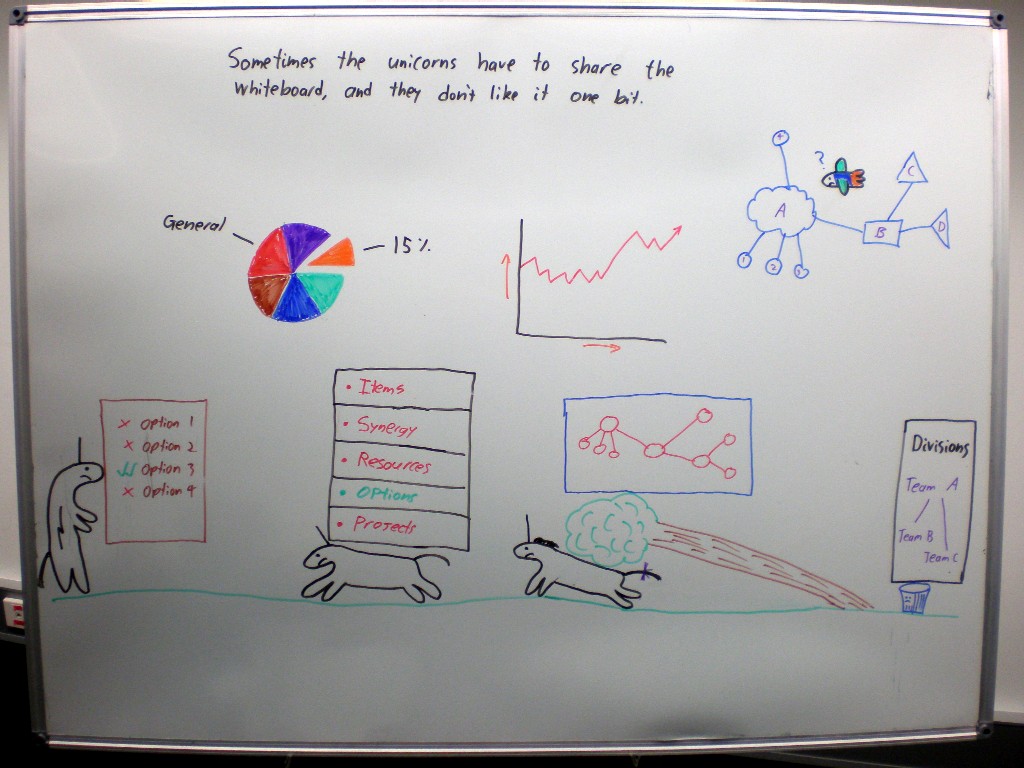 Sometimes the unicorns have to share the
whiteboard, and they don't like it one bit.
General
15%
?
A
B
C
D
1
2
x Option 1
x Option 2
Option 3
x Option 4
• Items
• Synergy
• Resources
• Options
• Projects
Divisions
Team A
Team B
Team C